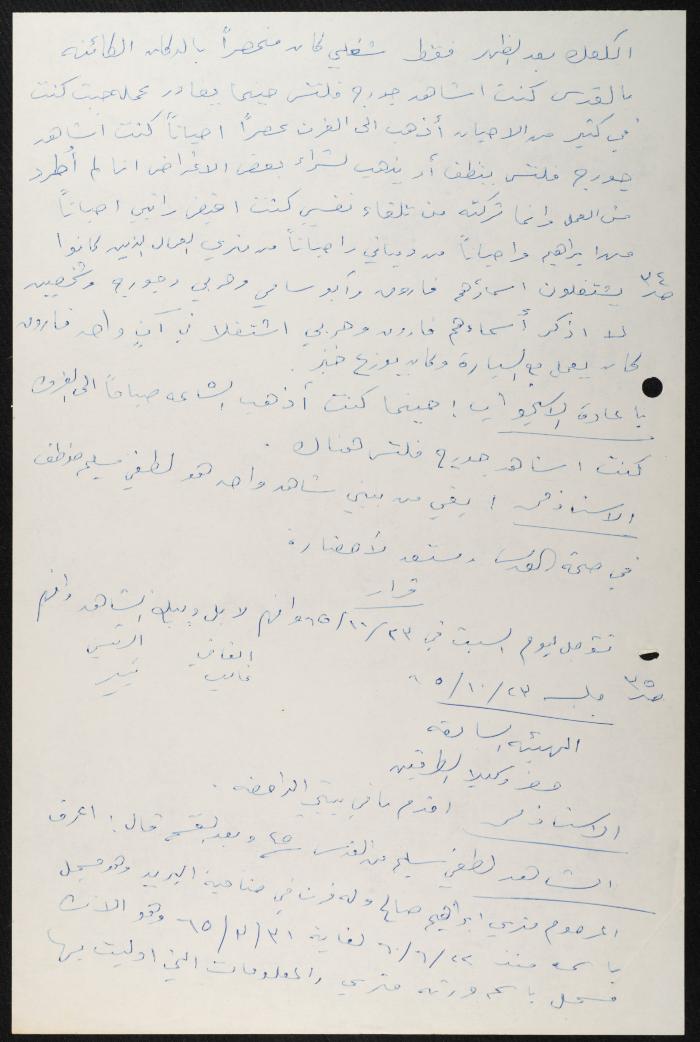 الكعك بعد الظهر فقط شغلي كان منحصراً بالدكان الكائنه
بالقدس كنت اشاهد جورج فلتس حينما يغادر محله حيث كنت
في كثير من الاحيان أذهب الى الفرن عصراً احياناً كنت اشاهد
جورج فلتس ينظف أو يذهب لشراء بعض الاغراض انا لم أُطرد
من العمل وانما تركته من تلقاء نفسي كنت اقبض راتبي احياناً
من ابراهيم واحياناً من واحياناً من فتحي العمال الذين كانوا
ص٣٤ يشتغلون اسماؤهم فارون وأبو سامي وحربي وجورج وشخصين
لا اذكر أسماءهم فارون وحربي اشتغلا في آن واحد فارون
كان يعمل مع السيارة وكان يوزع خبز.
باعادة الاستجواب: حينما كنت أذهب الساعه صباحاً الى الفرن
كنت اشاهد جورج فلتس هناك.
الاستاذ: بقي من بيني شاهد واحد هو لطفي سليم موظف
في صحة القدس ومستعد لاحضاره
قرار
تؤجل ليوم السبت في ٢٣/١٠/٦٥ وافهم
الرئيس القاضي
ص٣٥ جلسه ٢٣/١٠/٦٥
الهيئه السابقه
حضر وكيلا الطرفين
الاستاذ اقدم باقي بينتي الداحضه.
الشاهد لطفي سليم من القدس ٢٥ وبعد القسم قال: اعرف
المرحوم ابراهيم صالح وله فرن في ضاحية البريد وهو مسجل
باسمه منذ ٢٢/٦/٦٠ لغاية ٣١/٣/٦٥ وهو الان
مسجل باسم ورثة والمعلومات التي اوليت بها